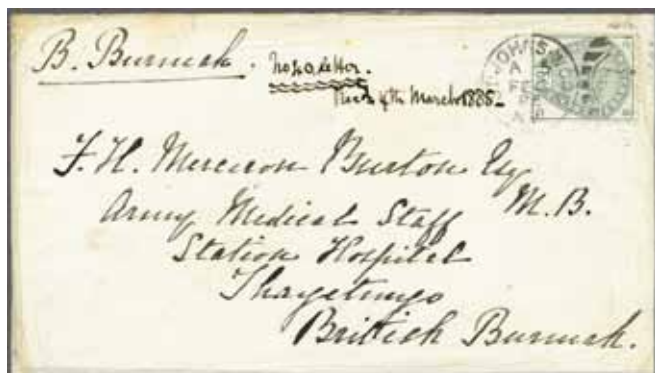 B. Burmah.
No 10 letter.
Recd 4th March 1885
JOHNS
F. H. Merceron Burton Esq
M.B.
Army Medical Staff
Station Hospital
Thayetmyo
British Burmah.